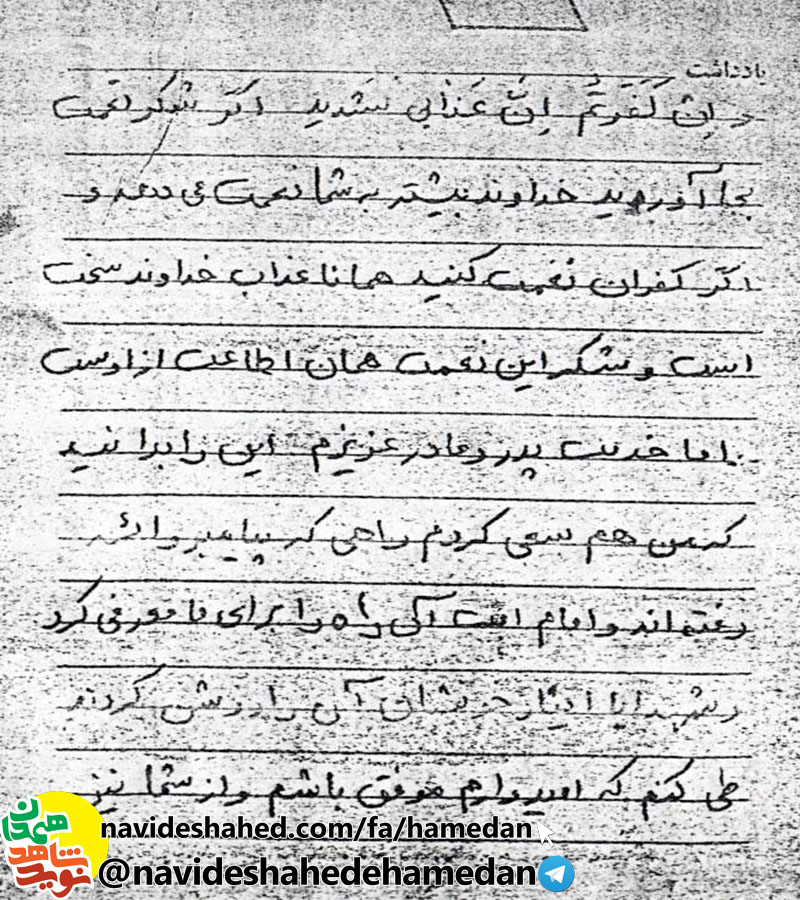 یادداشت
و لان کَفَرتُم اِنَّ عَذابی لَشَدید اگر شکر نعمت
بجا آورید خداوند بیشتر به شما نعمت می دهد و
اگر کفران نعمت کنید همانا عذاب خداوند سخت
است و شکر این نعمت همان اطاعت از اوست
اما خدمت پدر و مادر عزیزم این را بدانید
که من هم سعی کردم راهی که پیامبر و ائمه
رفته اند و امام امت آن راه را برای ما معرفی کرد
و شهدا با ایثار خونشان آن را روشن کردند
طی کنم که امیدوارم موفق باشم و از شما نیز
navideshahed.com/fa/hamedan
@navideshahedehamedan
نوید شاهد همدان